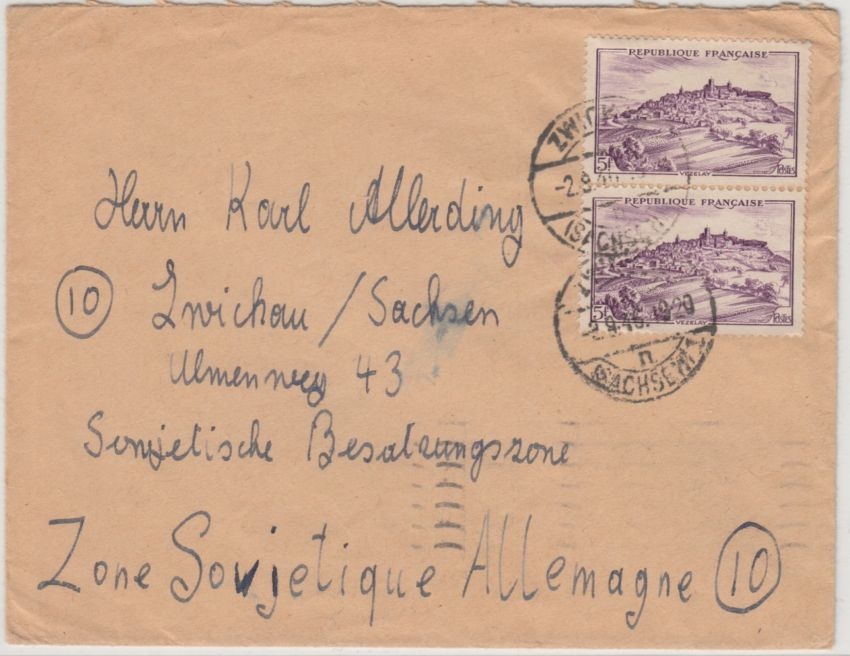 REPUBLIQUE FRANÇAISE
5F
VEZELAY
Postes
REPUBLIQUE FRANÇAISE
5F
VEZELAY
Postes
(SACHSEN)
n
(SACHSEN)
Herrn Karl Allerding
10 Zwickau / Sachsen
Ulmenweg 43
Sowjetische Besatzungszone
Zone Sovjetique Allemagne 10